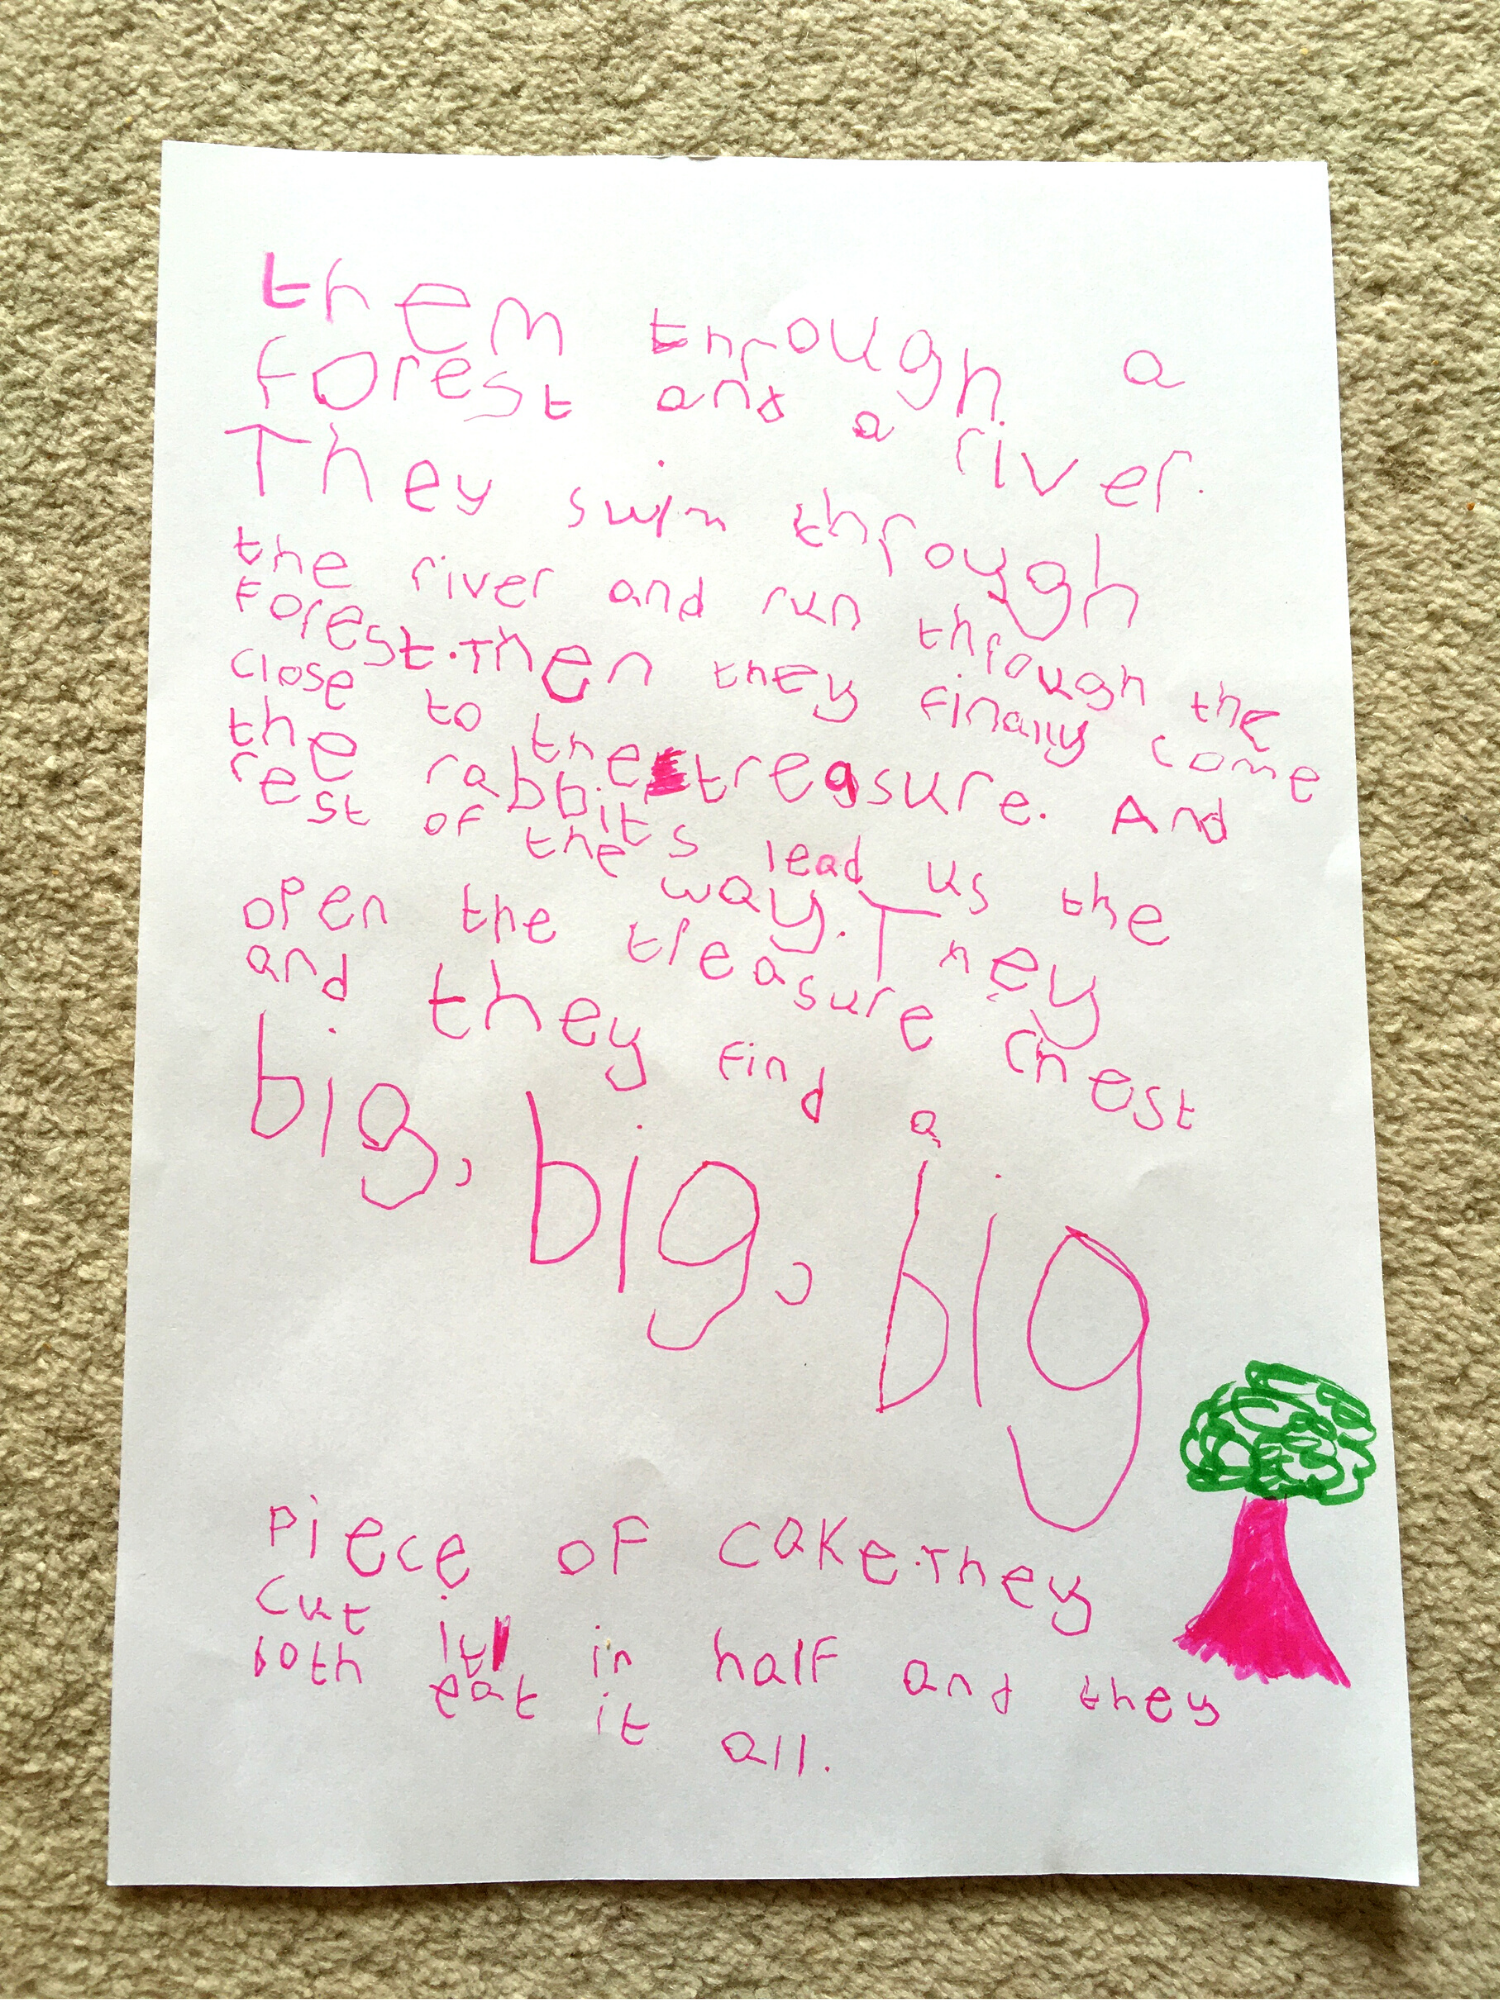 them through a
forest and a river.
They swim through
the river and run through the
forest. Then they finally come
close to the treasure. And
the rabbits lead us the
rest of the way. They
open the treasure chest
and they find a
big, big, big
piece of cake. They
cut it in half and they
both eat it all.